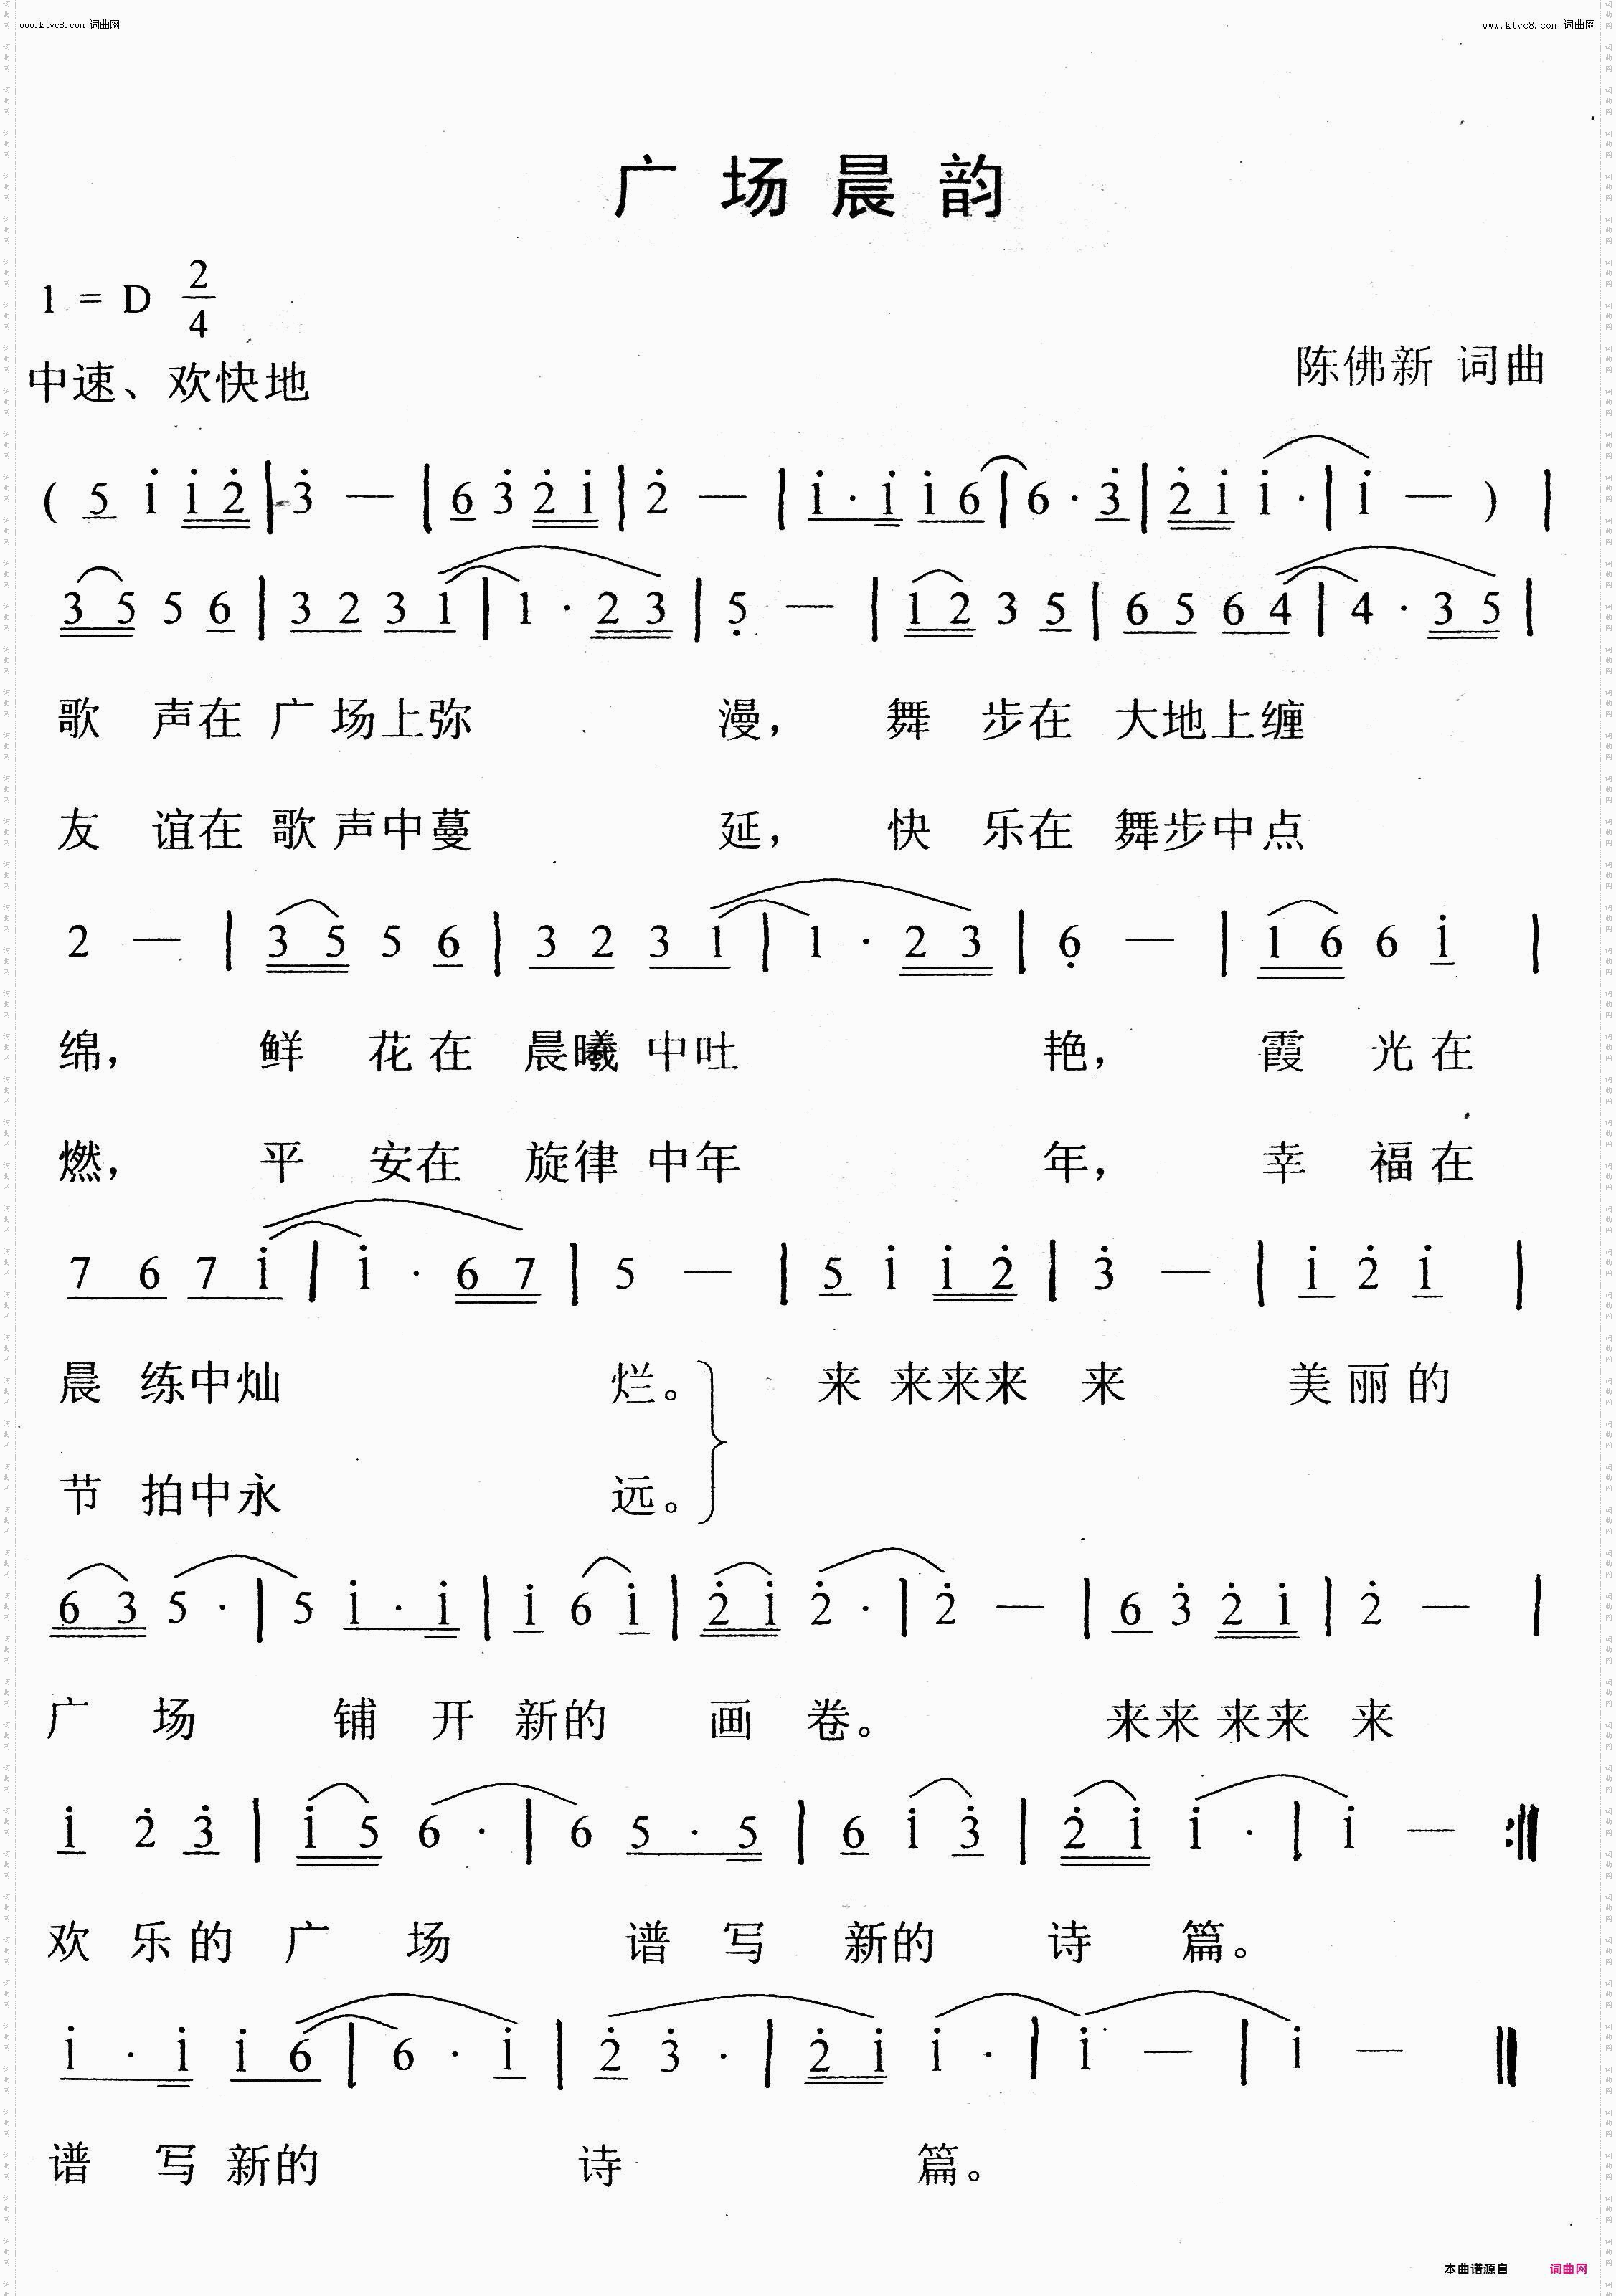 www.ktvc8.com 词曲网 www.ktvc8.com 词曲网
广场晨韵
1 = D 2/4
中速、欢快地 陈佛新 词曲
( 5 i i 2̇ | 3̇ — | 6 3̇ 2̇ i | 2̇ — | i · i i 6 | 6 · 3̇ | 2̇ i i · | i — ) |
3 5 5 6 | 3 2 3 1 | 1 · 2 3 | 5̣ — | 1 2 3 5 | 6 5 6 4 | 4 · 3 5 |
歌 声在 广 场上弥 漫， 舞 步在 大地上缠
友 谊在 歌 声中蔓 延， 快 乐在 舞步中点
2 — | 3 5 5 6 | 3 2 3 1 | 1 · 2 3 | 6̣ — | 1 6 6 i |
绵， 鲜 花 在 晨曦 中吐 艳， 霞 光在
燃， 平 安在 旋律 中年 年， 幸 福在
7 6 7 i | i · 6 7 | 5 — | 5 i i 2̇ | 3̇ — | i 2̇ i |
晨 练中灿 烂。 来 来来来 来 美丽的
节 拍中永 远。
6 3 5 · | 5 i · i | i 6 i | 2̇ i 2̇ · | 2̇ — | 6 3̇ 2̇ i | 2̇ — |
广 场 铺 开 新的 画 卷。 来来 来来 来
i 2̇ 3̇ | i 5 6 · | 6 5 · 5 | 6 i 3̇ | 2̇ i i · | i — :‖
欢 乐的 广 场 谱 写 新的 诗 篇。
i · i i 6 | 6 · i | 2̇ 3̇ · | 2̇ i i · | i — | i — ‖
谱 写 新的 诗 篇。
本曲谱源自 词曲网